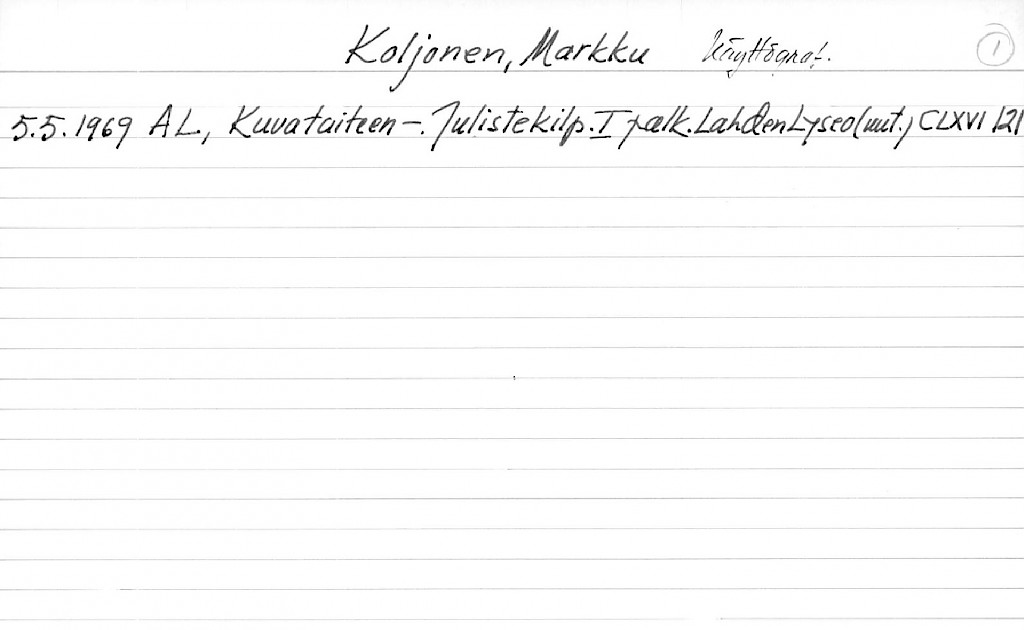 Koljonen, Markku Käyttögraf. 1
5.5.1969 AL, Kuvataiteen -. Julistekilp. I palk. Lahden Lyseo (uut.) CLXVI 121